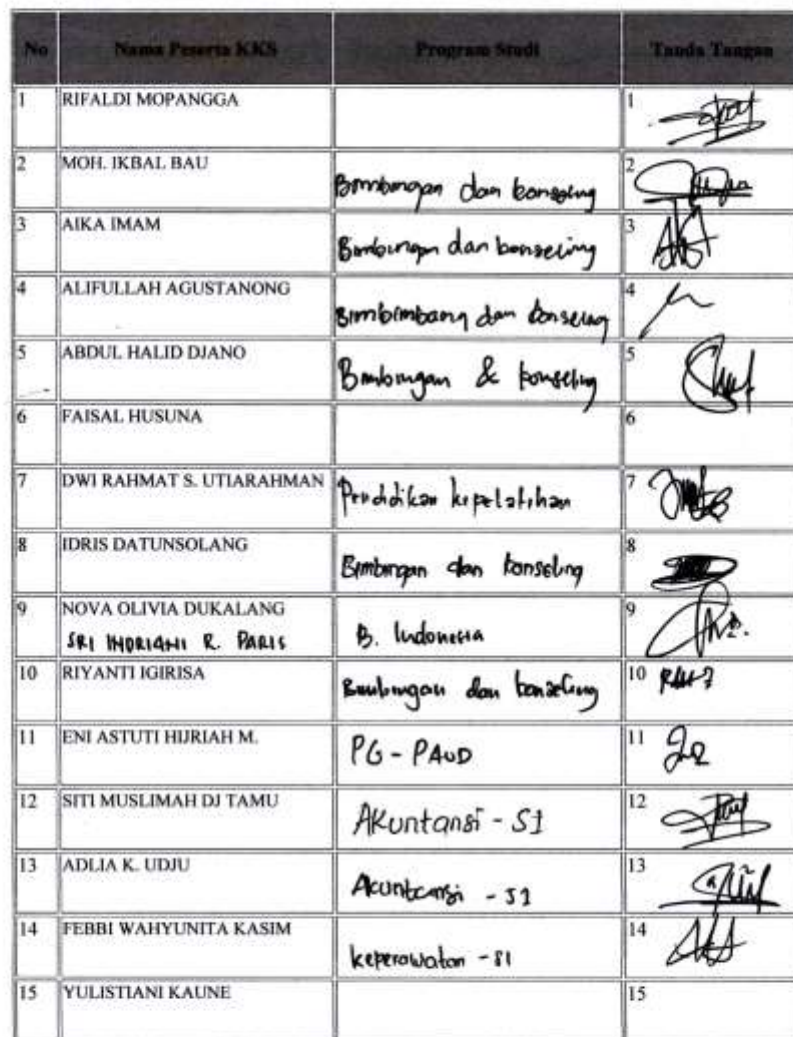 No Nama Peserta KKS Program Studi Tanda Tangan
1 RIFALDI MOPANGGA 1
2 MOH. IKBAL BAU Bimbingan dan konseling 2
3 AIKA IMAM Bimbingan dan konseling 3
4 ALIFULLAH AGUSTANONG Bimbimbang dan konseling 4
5 ABDUL HALID DJANO Bimbingan & konseling 5
6 FAISAL HUSUNA 6
7 DWI RAHMAT S. UTIARAHMAN Pendidikan kepelatihan 7
8 IDRIS DATUNSOLANG Bimbingan dan konseling 8
9 NOVA OLIVIA DUKALANG 9
SRI INDRIANI R. PARIS B. Indonesia
10 RIYANTI IGIRISA Bimbingan dan konseling 10
11 ENI ASTUTI HIJRIAH M. PG - PAUD 11
12 SITI MUSLIMAH DJ TAMU Akuntansi - S1 12
13 ADLIA K. UDJU Akuntansi - S1 13
14 FEBBI WAHYUNITA KASIM keperawatan - S1 14
15 YULISTIANI KAUNE 15